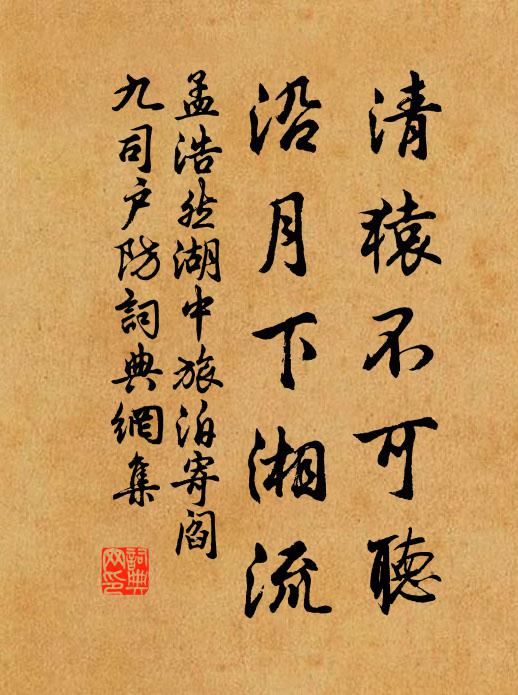 清猿不可聽
沿月下湘流
孟浩然湖中旅泊寄閻
九司戶防詞典網集
詞典
網印